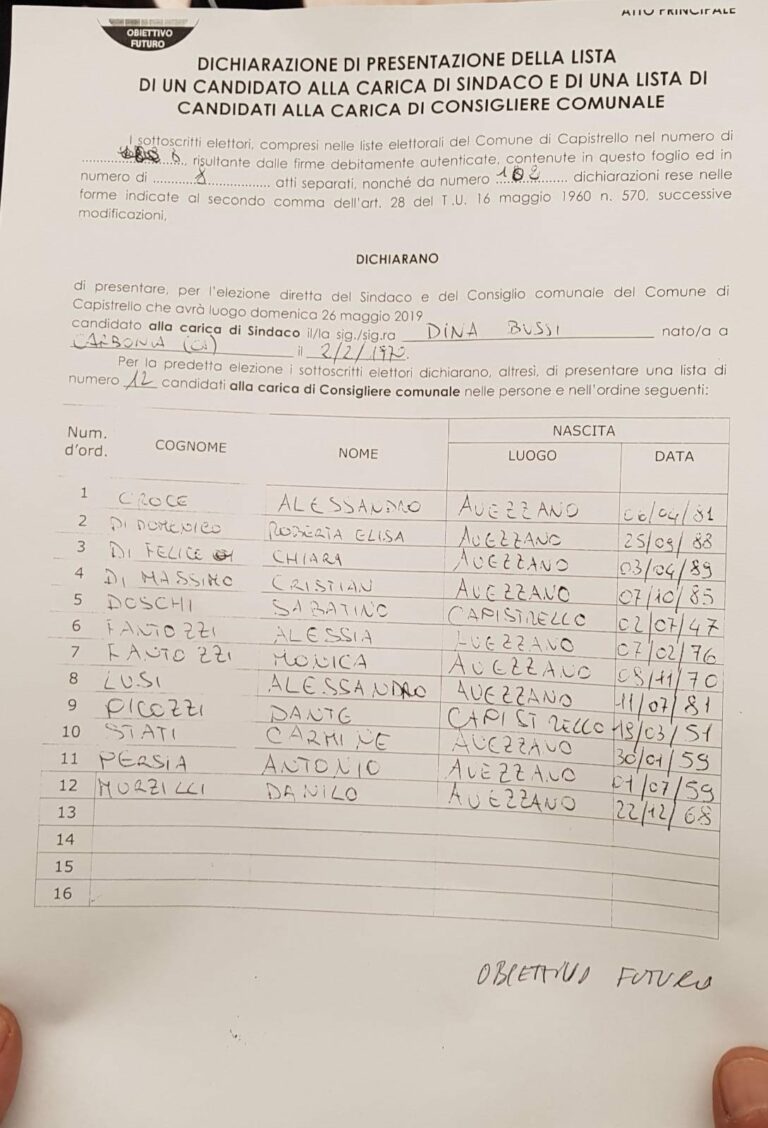 ATTO PRINCIPALE
OBIETTIVO
FUTURO
DICHIARAZIONE DI PRESENTAZIONE DELLA LISTA
DI UN CANDIDATO ALLA CARICA DI SINDACO E DI UNA LISTA DI
CANDIDATI ALLA CARICA DI CONSIGLIERE COMUNALE
I sottoscritti elettori, compresi nelle liste elettorali del Comune di Capistrello nel numero di
risultante dalle firme debitamente autenticate, contenute in questo foglio ed in
numero di ......8...... atti separati, nonché da numero ............ dichiarazioni rese nelle
forme indicate al secondo comma dell'art. 28 del T.U. 16 maggio 1960 n. 570, successive
modificazioni,
DICHIARANO
di presentare, per l'elezione diretta del Sindaco e del Consiglio comunale del Comune di
Capistrello che avrà luogo domenica 26 maggio 2019
candidato alla carica di Sindaco il/la sig./sig.ra DINA BUSSI nato/a a
CARBONIA (CI) il 2/2/1970.
Per la predetta elezione i sottoscritti elettori dichiarano, altresì, di presentare una lista di
numero 12 candidati alla carica di Consigliere comunale nelle persone e nell'ordine seguenti:
Num. d'ord. COGNOME NOME NASCITA
LUOGO DATA
1 CROCE ALESSANDRO AVEZZANO 06/04/81
2 DI DOMENICO ROBERTA ELISA AVEZZANO 25/09/88
3 DI FELICE CHIARA AVEZZANO 03/04/89
4 DI MASSIMO CRISTIAN AVEZZANO 07/10/85
5 DOSCHI SABATINO CAPISTRELLO 02/07/47
6 FANTOZZI ALESSIA AVEZZANO 07/02/76
7 FANTOZZI MONICA AVEZZANO 08/11/70
8 LUSI ALESSANDRO AVEZZANO 11/07/81
9 PICOZZI DANTE CAPISTRELLO 18/03/51
10 STATI CARMINE AVEZZANO 30/01/59
11 PERSIA ANTONIO AVEZZANO 01/07/59
12 MURZILLI DANILO AVEZZANO 22/12/68
13
14
15
16
OBIETTIVO FUTURO